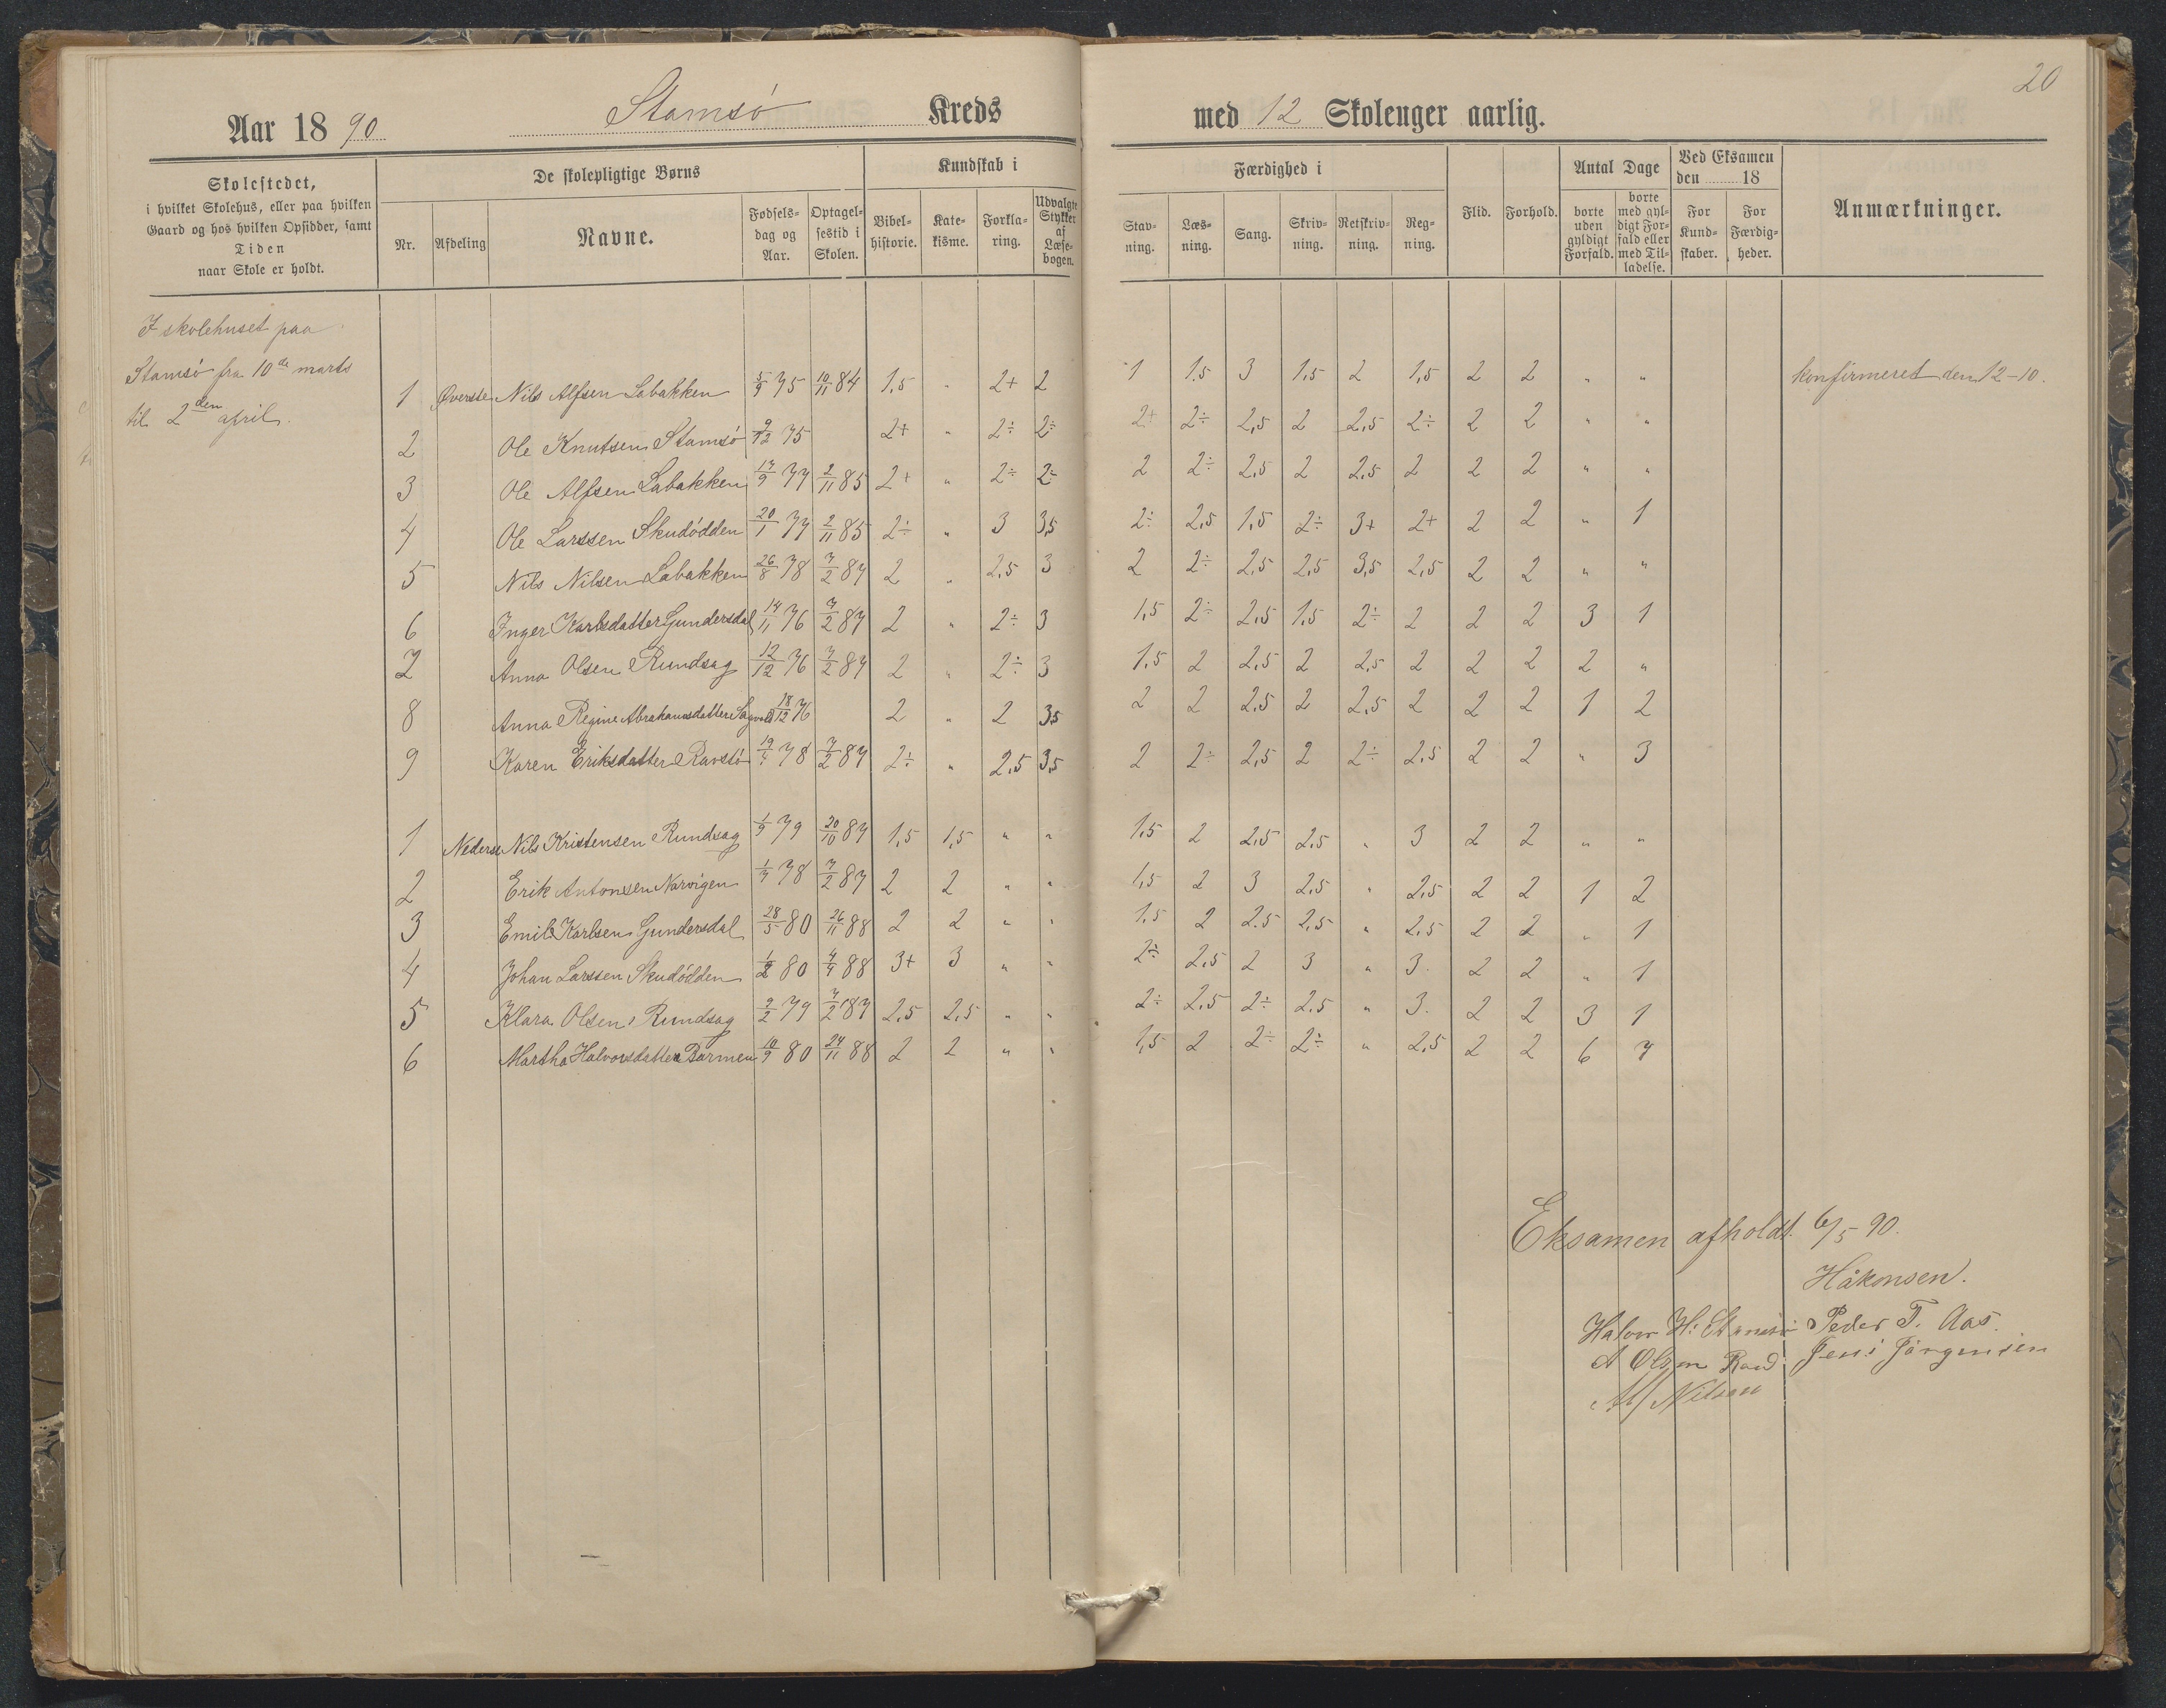 20
Aar 1890 Stamsö Kreds med 12 Skolenger aarlig.
Skolestedet, i hvilket Skolehus, eller paa hvilken Gaard og hos hvilken Opsidder, samt Tiden naar Skole er holdt.
De skolepligtige Børns
Nr. Afdeling Navne. Fødselsdag og Aar. Optagelsestid i Skolen.
Kundskab i
Bibelhistorie. Katekisme. Forklaring. Udvalgte Stykker af Læsebogen.
Færdighed i
Stavning. Læsning. Sang. Skrivning. Retskrivning. Regning.
Flid. Forhold.
Antal Dage
borte uden gyldigt Forfald. borte med gyldigt Forfald eller med Tilladelse.
Ved Eksamen den 18
For Kundskaber. For Færdigheder.
Anmærkninger.
I skolehuset paa
Stamsö fra 10de marts
til 2den april.
1 Øverste Nils Alfsen Labakken 5/9 75 10/11 84 1,5 " 2+ 2 1 1.5 3 1,5 2 1,5 2 2 " " konfirmeret den 12-10.
2 Ole Knutsen Stamsö 9/12 75 2+ " 2÷ 2÷ 2+ 2÷ 2,5 2 2,5 2÷ 2 2 " "
3 Ole Alfsen Labakken 17/9 77 2/11 85 2+ " 2÷ 2÷ 2 2÷ 2,5 2 2,5 2 2 2 " "
4 Ole Larssen Skudödden 20/1 77 2/11 85 2÷ " 3 3,5 2÷ 2,5 1,5 2÷ 3+ 2+ 2 2 " 1
5 Nils Nilsen Labakken 26/8 78 7/2 87 2 " 2,5 3 2 2÷ 2,5 2,5 3,5 2,5 2 2 " "
6 Inger Karlsdatter Gundersdal 14/11 76 7/2 87 2 " 2÷ 3 1,5 2÷ 2,5 1,5 2÷ 2 2 2 3 1
7 Anna Olsen Rundsag 12/12 76 7/2 87 2 " 2÷ 3 1,5 2 2,5 2 2,5 2 2 2 2 "
8 Anna Regine Abrahamsdatter 18/12 76 2 " 2 3,5 2 2 2,5 2 2,5 2 2 2 1 2
9 Karen Eriksdatter Ravstö 78 7/2 87 2÷ " 2,5 3,5 2 2÷ 2,5 2 2÷ 2,5 2 2 " 3
1 Nederste Nils Kristensen Rundsag 1/9 79 20/10 87 1,5 1,5 " " 1,5 2 2,5 2,5 " 3 2 2 " "
2 Erik Antonsen Narvigen 1/7 78 7/2 87 2 2 " " 1,5 2 3 2,5 " 2,5 2 2 1 2
3 Emil Karlsen Gundersdal 28/5 80 26/11 88 2 2 " " 1,5 2 2.5 2,5 " 2,5 2 2 " 1
4 Johan Larssen Skudödden 1/2 80 88 3+ 3 " " 2÷ 2,5 2 3 " 3. 2 2 " 1
5 Klara Olsen Rundsag 2/2 79 7/2 87 2,5 2,5 " " 2÷ 2,5 2÷ 2.5 " 3. 2 2 3 1
6 Martha Halvorsdatter 10/9 80 24/11 88 2 2 " " 1,5 2 2÷ 2÷ " 2,5 2 2 6 7
Eksamen afholdt 6/5 90.
Håkonsen.
Halvor H. Stamsö Peder T. Aas.
A Olsen Jens Jörgensen
Alf Nilsen